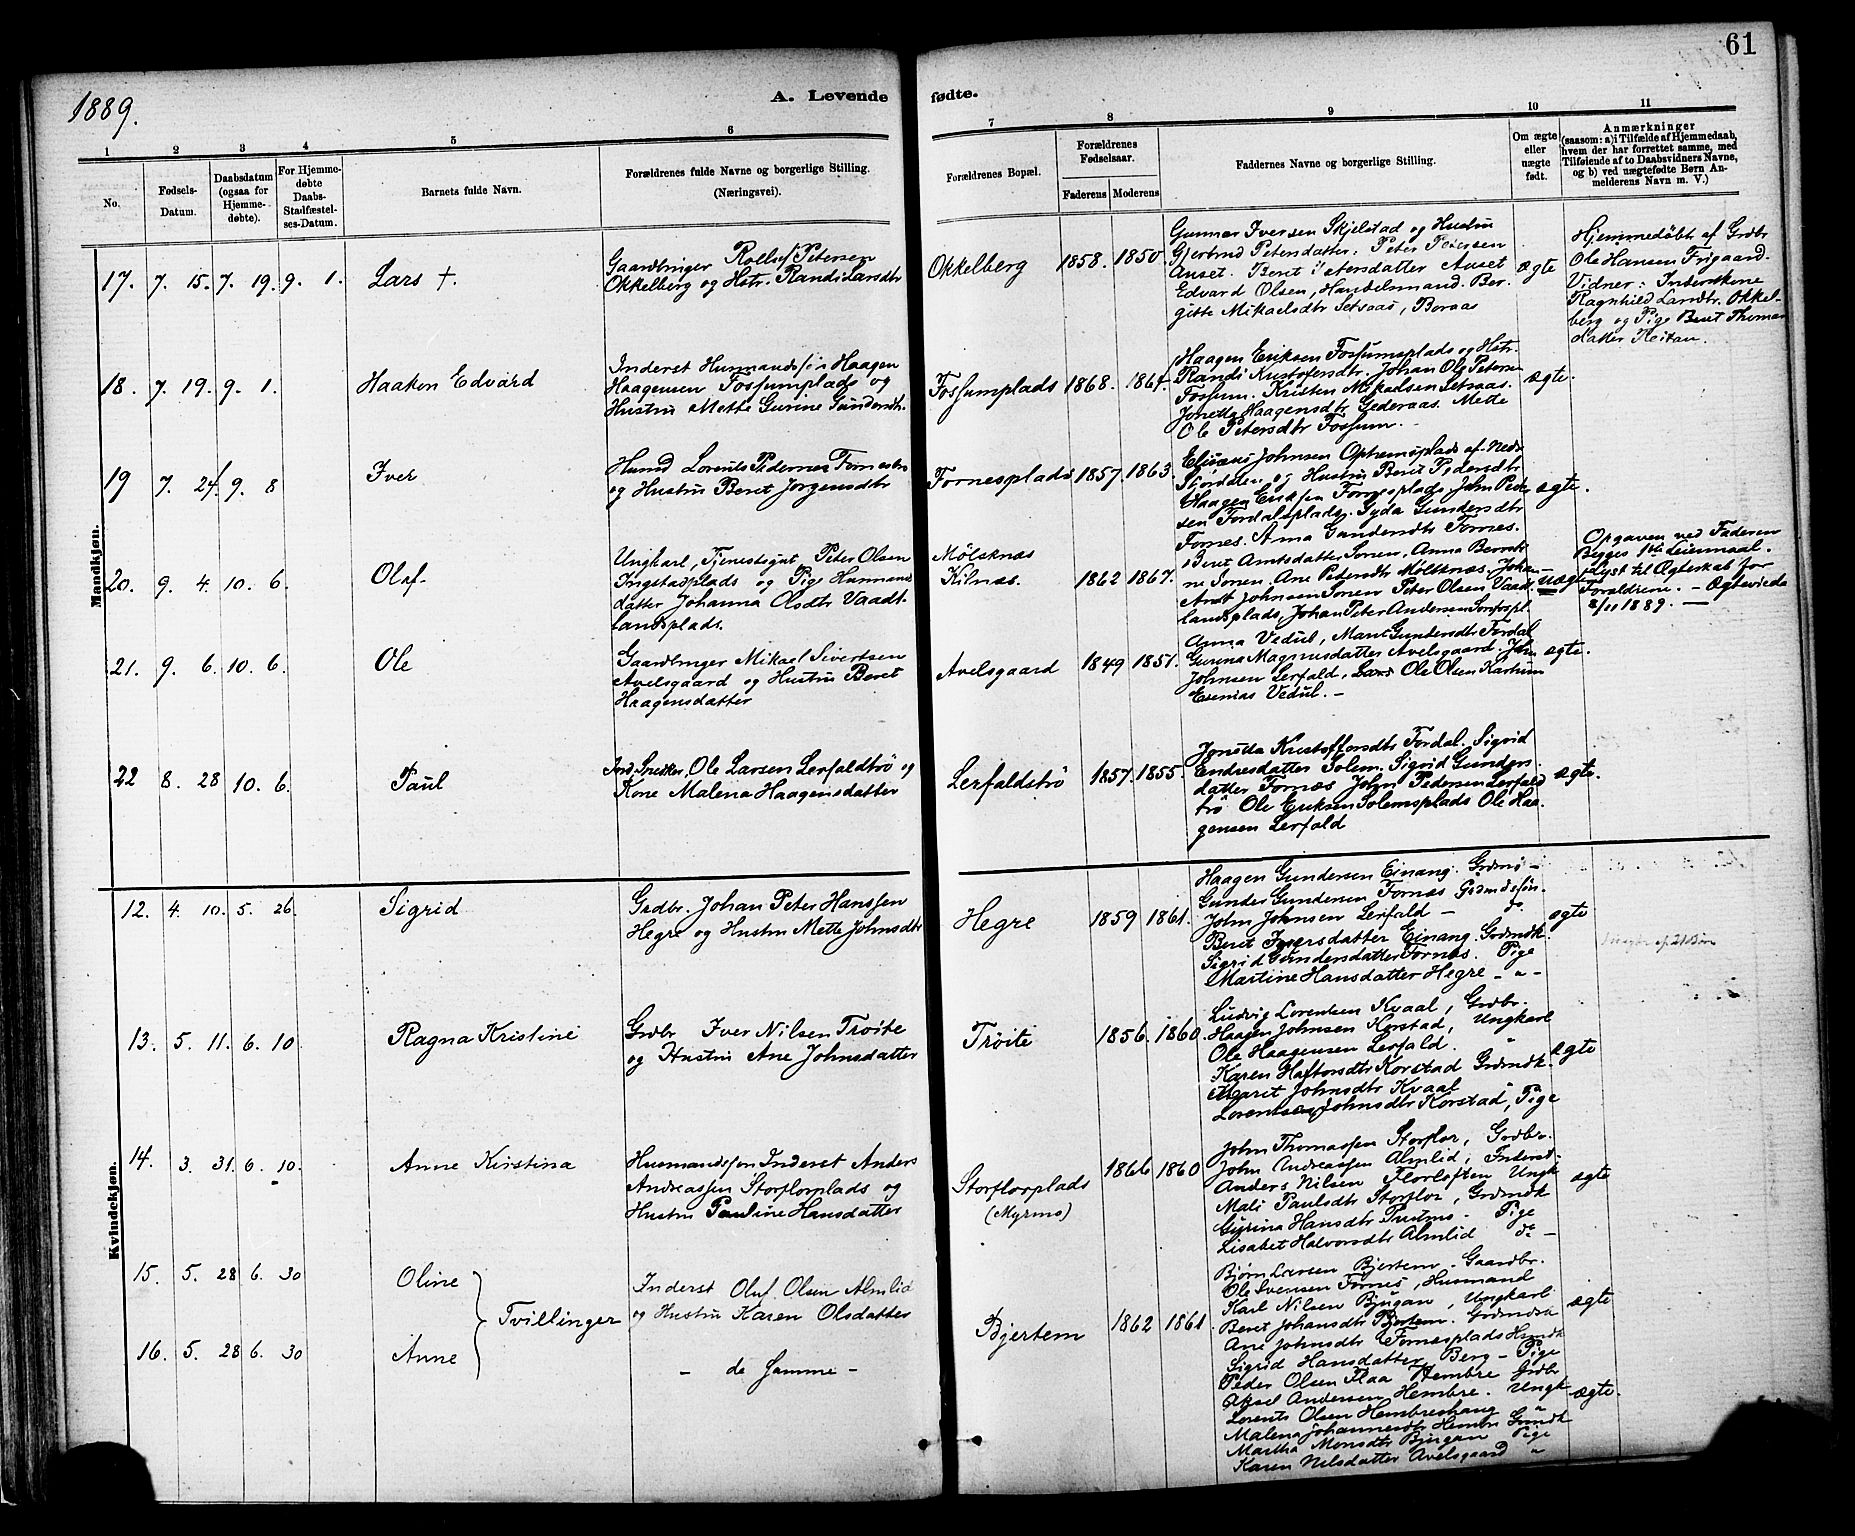 1889.
A. Levende fødte.
61
1 2 3 4 5 6 7 8 9 10 11
No.
Fødsels-
Datum.
Daabsdatum
(ogsaa for
Hjemme-
døbte).
For Hjemme-
døbte
Daabs-
Stadfæstel-
ses-Datum.
Barnets fulde Navn.
Forældrenes fulde Navne og borgerlige Stilling.
(Næringsvei).
Forældrenes Bopæl.
Forældrenes
Fødselsaar.
Faderens Moderens
Faddernes Navne og borgerlige Stilling.
Om ægte
eller
uægte
født.
Anmærkninger
(saasom: a) i Tilfælde af Hjemmedaab,
hvem der har forrettet samme, med
Tilføiende af to Daabsvidners Navne,
og b) ved uægtefødte Børn An-
melderens Navn m. V.)
Mandkjøn.
17. 7. 15. 7. 19. 9. 1. Lars †.
Gaardbruger Rollef Petersen
Okkelberg og Hstr. Randi Larsdtr
Okkelberg 1858. 1850.
Gunnar Iversen Skjelstad og Hustru
Gjertrud Petersdatter. Peter Petersen
Auset. Beret Petersdatter Auset
Edvard Olsen, Handelsmand. Ber-
gitte Mikaelsdtr Setsaas, Boraas
ægte
Hjemmedøbt af Grdbr
Ole Hansen Frigaard.
Vidner: Inderstkone
Ragnhild Larsdtr. Okkel-
berg og Pige Beret Thomas
datter Reitan.
18. 7. 19. 9. 1. Haaken Edvard
Inderst Husmandssøn Haagen
Haagensen Fossumplads og
Hustru Mette Gurine Gundersdtr.
Fossumplads 1868. 1864.
Haagen Eriksen Fossumsplads og Hstr.
Randi Kristofersdtr. Johan Ol Petersen
Fossum. Kristen Mikaelsen Setsaas.
Jonetta Haagensdtr Gederaas. Mette
Ol Petersdtr Fossum.
ægte.
19 7. 24. 9. 8 Iver
Husmd Lorents Pedersen Fornesplads
og Hustru Beret Jørgensdtr
Fornesplads 1857. 1863.
Elisæus Johnsen Ophemsplads af Nedr
Stjørdalen og Hustru Beret Pedersdtr
Haagen Eriksen Fornesplads, John Peder-
sen Fordalsplads. Gunders dtr
Fornes. Anna Gundersdtr Fornes.
ægte.
20. 9. 4. 10. 6. Olaf.
Ungkarl, Tjenestegut Peter Olsen
Ingstadplads og Pige Husmands
datter Johanna Olsdtr Vaadt-
landsplads.
Mølsknæs
Kilnæs. 1862 1867.
Beret Arntsdatter Sonen, Anna Bernt-
ne Sonen. Ane Petersdtr Mølsknæs. Johan
Arnt Johnsen Sonen Peter Olsen Vaadt-
landsplads, Johan Peter Andersen
uægte
Opgaven ved Faderen
Begges 1ste Leiermaal.
Lyst til Ægteskab for
Forældrene. – Ægteviede
8/11 1889. –
21. 9. 6. 10. 6. Ole
Gaardbruger Mikael Sivertsen
Avelsgaard og Hustru Beret
Haagensdatter
Avelsgaard 1849 1851.
Anna Vedul, Marit Gundersdtr Fordal
Gurina Magnusdatter Avelsgaard. John
Johnsen Lerfald, Lars Ole Olsen Kartum
Esenias Vedul. –
ægte.
22 8. 28 10. 6. Paul
Ind. Snedker, Ole Larsen Lerfaldtrø og
Kone Malena Haagensdatter
Lerfaldstrø 1857. 1855.
Jonetta Kristoffersdtr Fordal. Sigrid
Endresdatter Solem. Sigrid Gunders
datter Fornæs John Pedersen Lerfald
trø Ole Eriksen Solemsplads Ole Haa-
gensen Lerfald
ægte.
Kvindekjøn.
12. 4. 10. 5. 26. Sigrid
Grdbr. Johan Peter Hanssen
Hegre og Hustru Mette Johnsdtr
Hegre 1859 1861.
Haagen Gundersen Einang. Grdmd –
Gunder Gundersen Fornæs Grdmdssøn.
John Johnsen Lerfald – do
Beret Iversdatter Einang. Grdmdk.
Sigrid Gundersdatter Fornæs. Pige
Martine Hansdatter Hegre – " –
ægte
13. 5. 11. 6. 10 Ragna Kristine
Grdbr Iver Nilsen Trøite
og Hustru Ane Johnsdatter
Trøite 1856. 1860.
Ludvig Lorentsen Kvaal, Grdbr.
Haagen Johnsen Korstad, Ungkarl
Ole Haagensen Lerfald. "
Karen Haftorsdtr Korstad Grdmdk.
Maret Johnsdtr Kvaal "
Lorentsen Johnsdtr Korstad, Pige
ægte
14. 3. 31. 6. 10. Anne Kirstina
Husmandssøn Inderst Anders
Andreassen Storflorplads og
Hustru Pauline Hansdatter
Storflorplads
(Myrmo) 1866 1860
John Thomassen Storflor, Grdbr.
John Andreassen Almlid, Inderst
Anders Nilsen Florløften Ungk
Mali Paulsdtr Storflor, Grdmdk
Gurina Hansdtr Pige
Lisabet Halvorsdtr Almlid do –
ægte
15. 5. 28 6. 30 Oline
Tvillinger
Inderst Oluf Olsen Almlid
og Hustru Karen Olsdatter
Bjertem 1862 1861.
Bjørn Larsen Bjertem – Gaardbr.
Ole Svensen Fornes, Husmand
Karl Nilsen Bjugan, Ungkarl
Beret Johansdtr Bjertem. Grdmdsk
Ane Johnsdtr Fornesplads Husmdk
Sigrid Hansdatter Berg – Pige
ægte
16. 5. 28 6. 30 Anne
– de Samme –
Peder Olsen Flaa Hembre Grdbr
Aksel Andersen Hembre. Ungk
Lorents Olsen Hembrehaug "
Malena Johannesdtr Hembre Grmdk
Martha Monsdtr Bjugan Pige
Karen Nilsdatter Avelsgaard "
ægte.